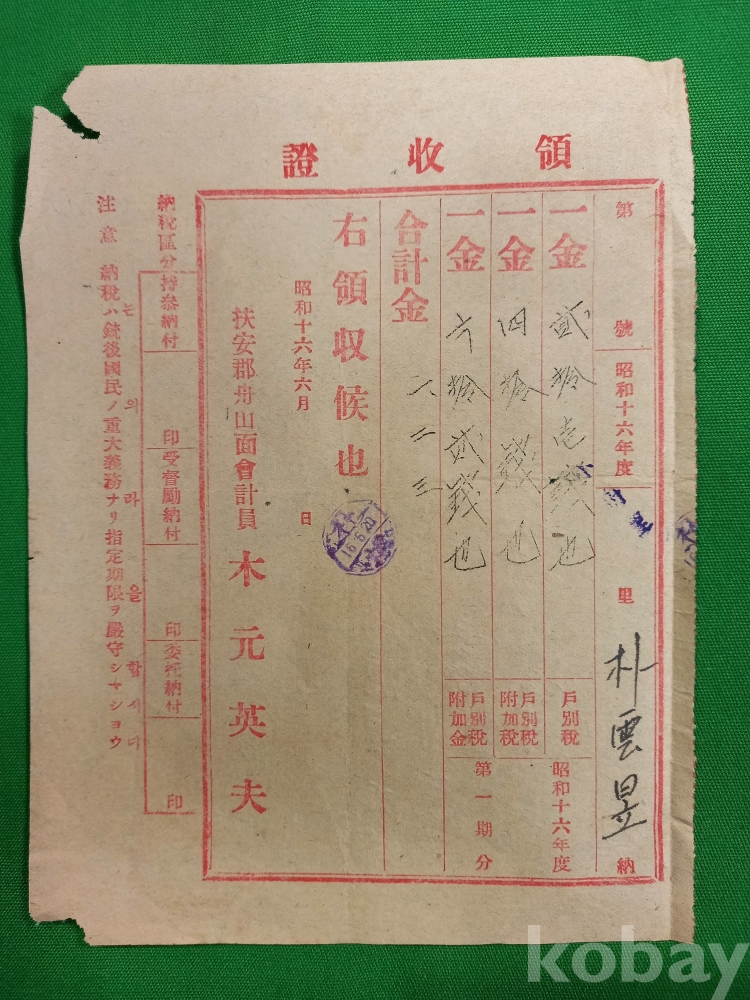 領收證
第 號 昭和十六年度 里 朴雲昱 納
一金 貳拾壱錢也 戶別稅 昭和十六年度
一金 四拾錢也 戶別稅附加稅
一金 六拾貳錢也 戶別稅附加金 第一期分
合計金 一、二三
右領収候也
昭和十六年六月 日
16.6.20
扶安郡舟山面會計員 木元英夫
納稅區分 持參納付 印 受督勵納付 印 委托納付 印
注意 納稅ハ銃後國民ノ重大義務ナリ指定期限ヲ嚴守シマショウ
는 의 라 을 합시다
kobay